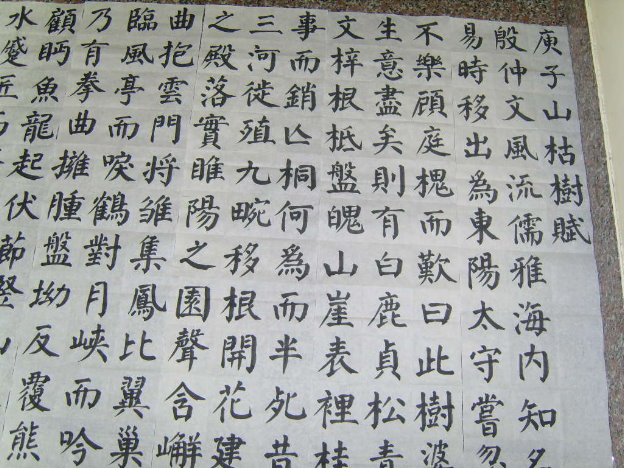 庾子山枯樹賦
殷仲文風流儒雅海內知名
易時移出爲東陽太守嘗忽
不樂顧庭槐而歎曰此樹婆
生意盡矣則有白鹿貞松青
文梓根抵盤魄山崖表裡桂
事而銷亡桐何爲而半死昔
三河徙殖九畹移根開花建
之殿落實睢陽之園聲含嶰
曲抱雲門將雛集鳳比翼巢
臨風亭而唳鶴對月峽而吟
乃有拳曲擁腫盤坳反覆熊
顧眄魚龍起伏節豎
水蹙匠